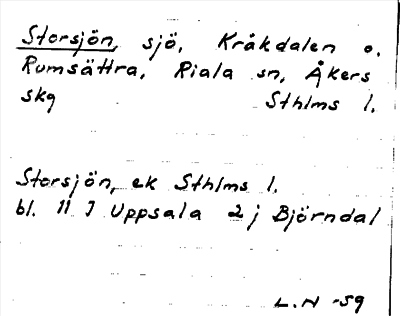 Storsjön, sjö, Kråkdalen o.
Rumsättra, Riala sn, Åkers
skg Sthlms l.
Storsjön, ek Sthlms l.
bl. 11 I Uppsala 2 j Björndal
L.N -59